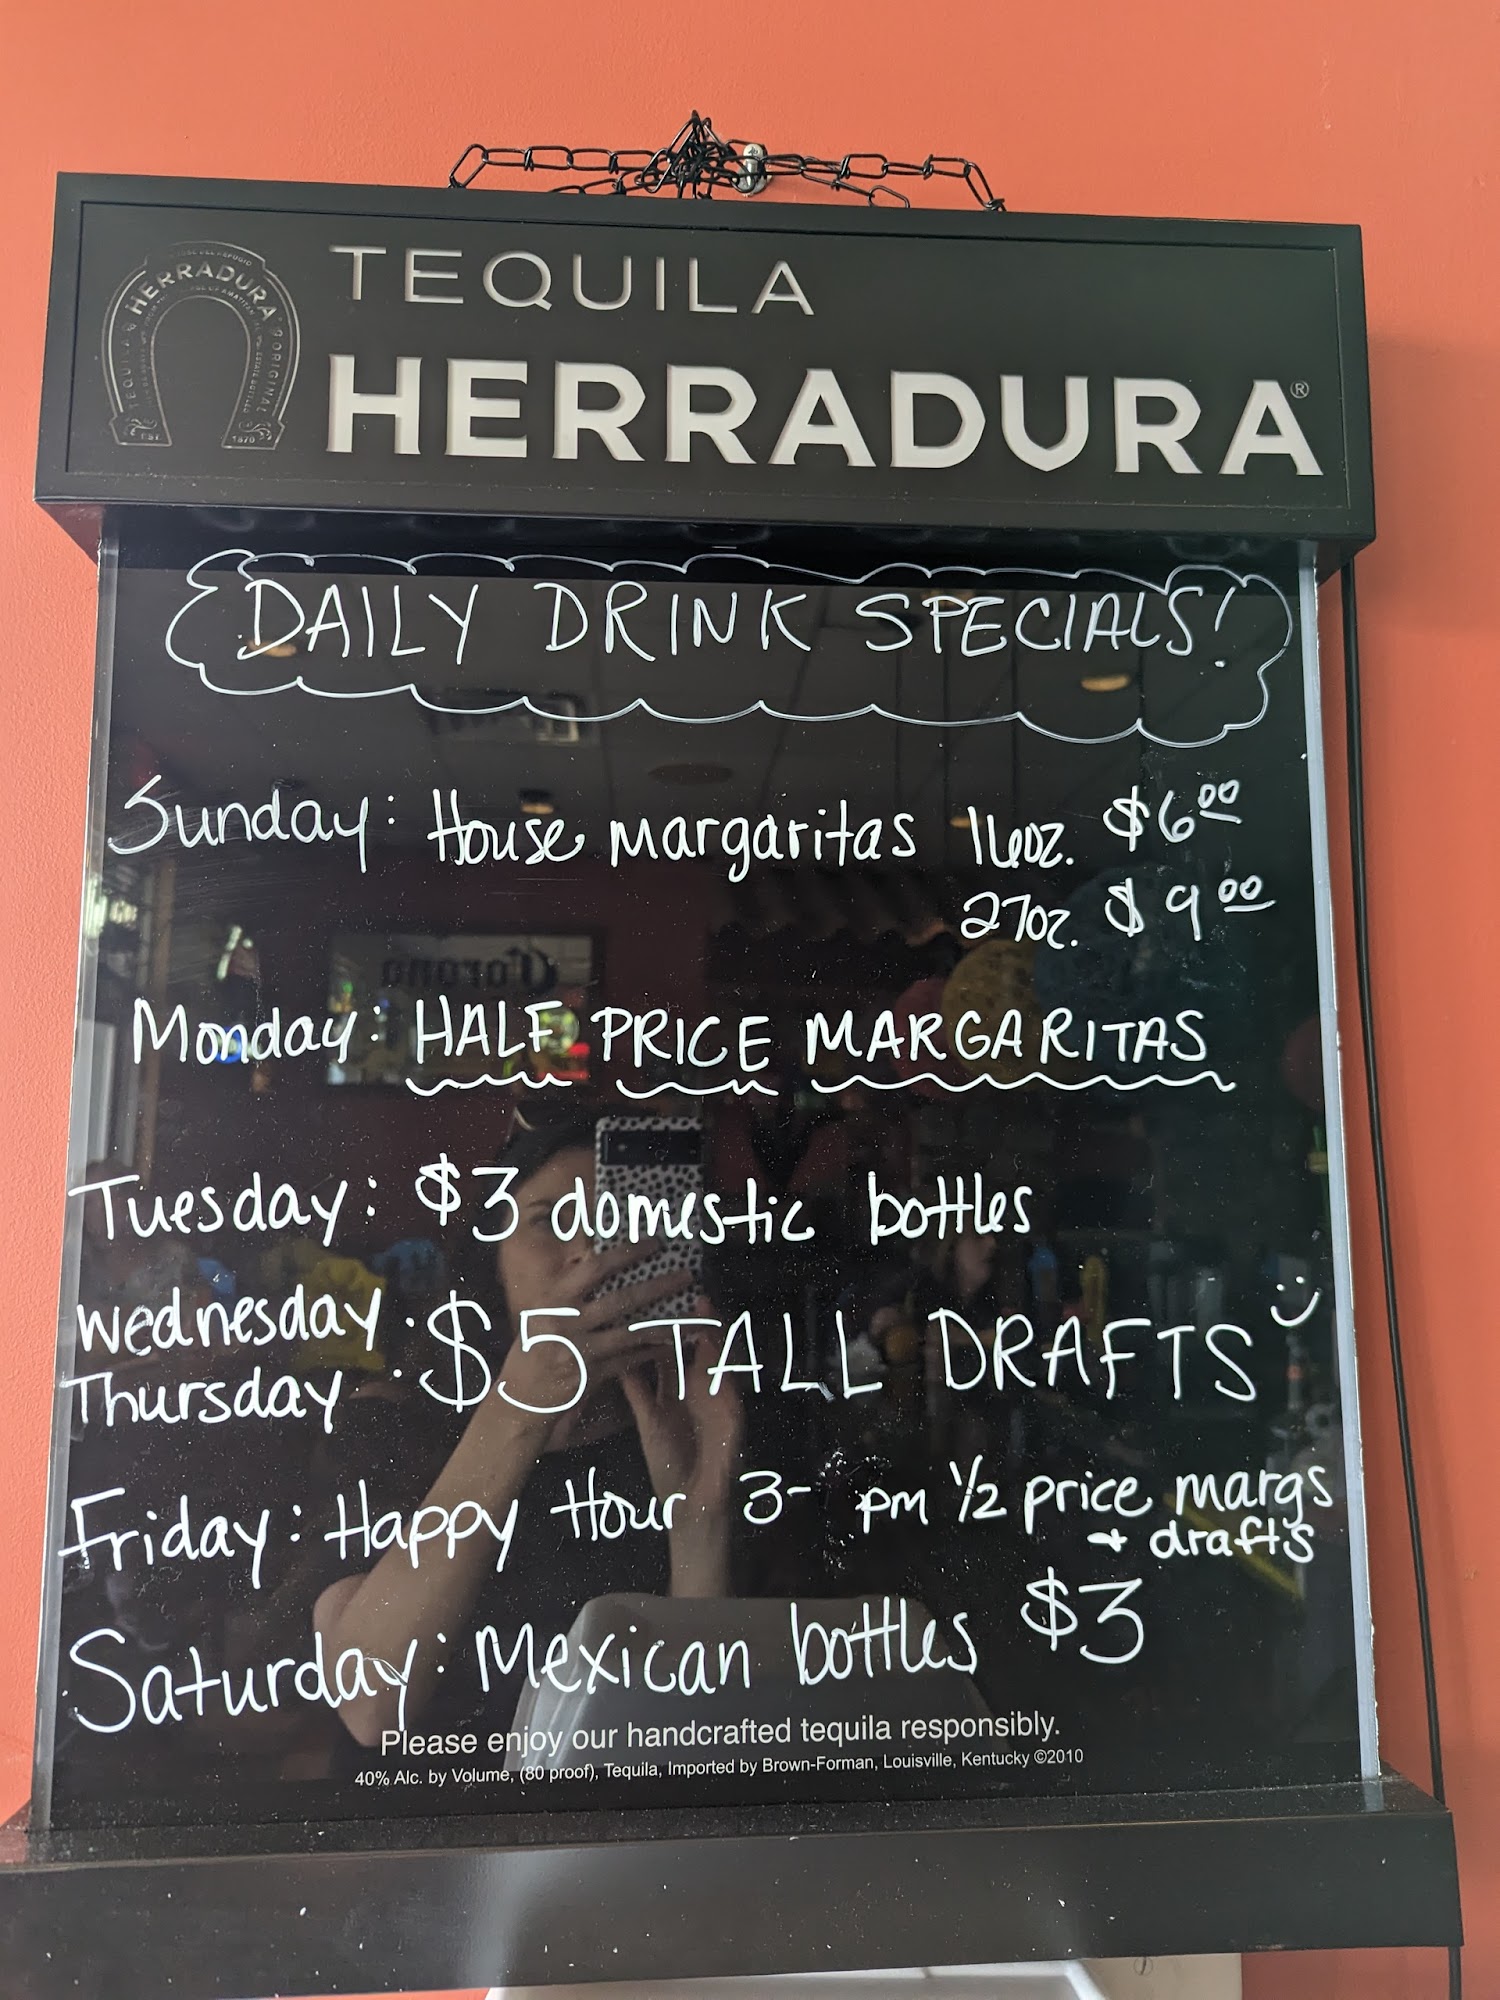 TEQUILA
HERRADURA®
HERRADURA
TEQUILA
ORIGINAL
EST. 1870
DAILY DRINK SPECIALS!
Sunday: House margaritas 16oz. $6.00
27oz. $9.00
Monday: HALF PRICE MARGARITAS
Tuesday: $3 domestic bottles
Wednesday
Thursday : $5 TALL DRAFTS
Friday: Happy Hour 3- pm 1/2 price margs
+ drafts
Saturday: Mexican bottles $3
Please enjoy our handcrafted tequila responsibly.
40% Alc. by Volume, (80 proof), Tequila, Imported by Brown-Forman, Louisville, Kentucky ©2010
Corona